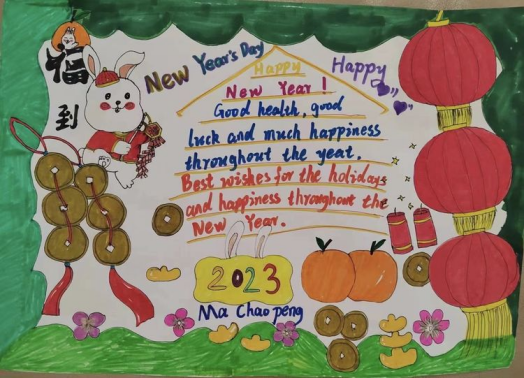 福
到
New Year's Day
Happy
Happy
New Year!
Good health, good
luck and much happiness
throughout the year.
Best wishes for the holidays
and happiness throughout the
New Year.
2023
Ma Chaopeng